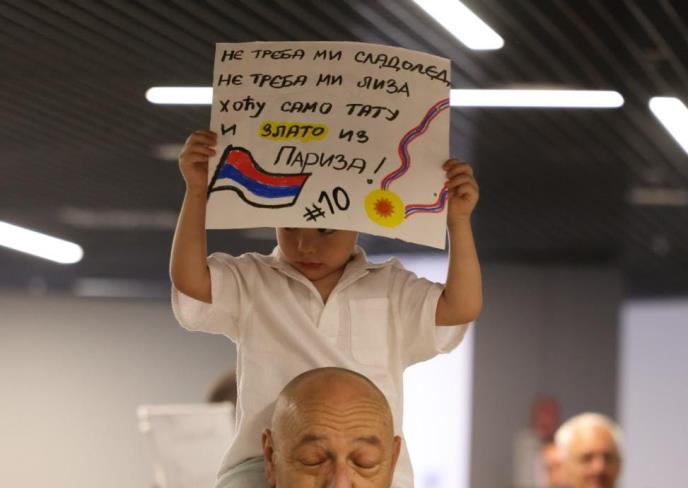 НЕ ТРЕБА МИ СЛАДОЛЕД,
НЕ ТРЕБА МИ ЛИЗА
ХОЋУ САМО ТАТУ
И ЗЛАТО ИЗ
ПАРИЗА!
#10